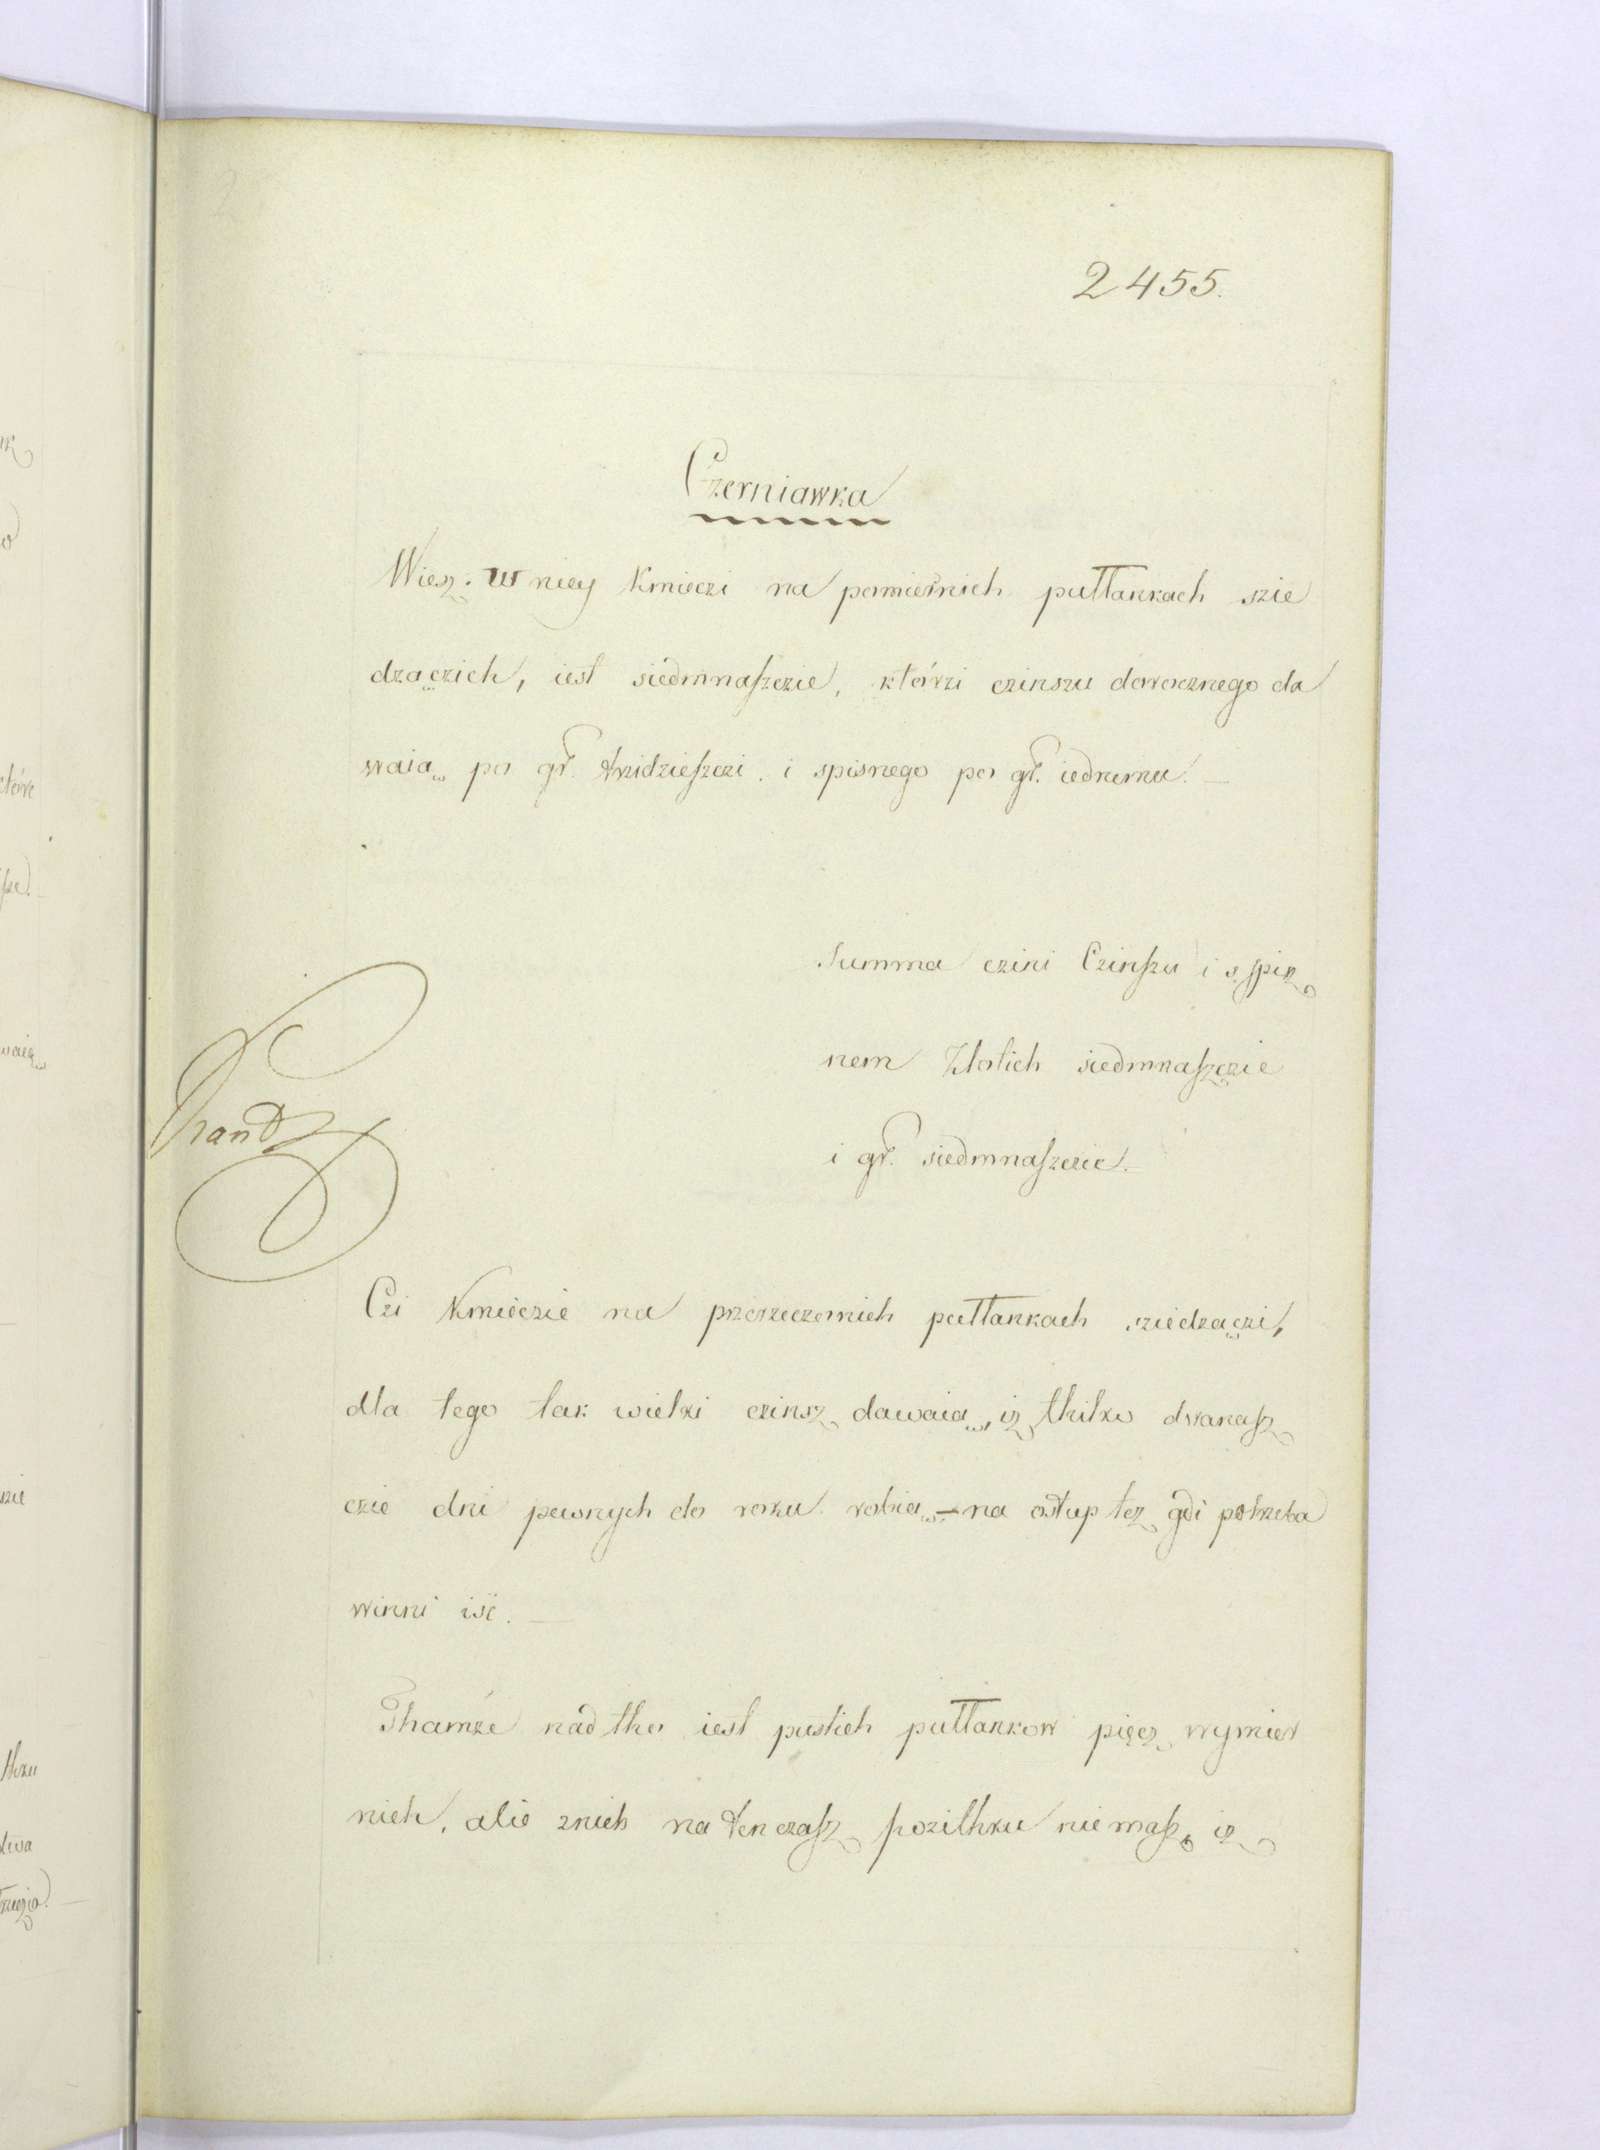 2455.
Czerniawka
Wiesz. w niey Kmieczi na pomiernich pułłankach szie
dzączich, iest siedmnaszczie, którzi czinszu dorocznego da
waią po gr. trzidzieszczi. i spisnego po gr. iednemu. —
Summa czini Czinszu i s spiz
nem Złotich siedmnaszczie
i gr. siedmnaszczie. —
Czi Kmieczie na przerzeczonich pułłankach sziedzączi,
dla tego tak wielki czinsz dawaią, iz thilko dwanasz
czie dni pewnych do roku robią — na ostup tez gdi potrzeba
winni iść. —
Thamże nad tho iest pustich pułłankow pięcz wymier
nich, alie znich na ten czasz pozithku niemasz, iz